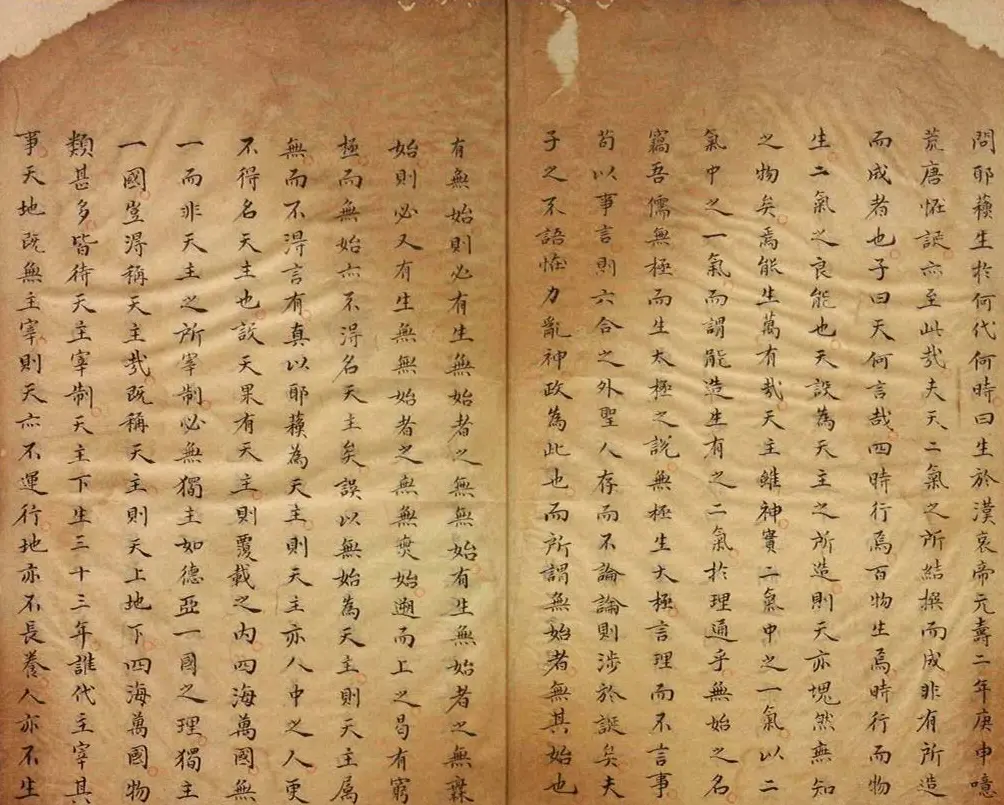 問耶蘓生於何代何時曰生於漢哀帝元壽二年庚申噫
荒唐恠誕亦至此㢤夫天二氣之所結撰而成非有所造
而成者也子曰天何言哉四時行焉百物生焉時行而物
生二氣之良能也天設為天主之所造則天亦塊然無知
之物矣焉能生萬有㢤天主雖神實二氣中之一氣以二
氣中之一氣而謂能造生有之二氣於理通乎無始之名
竊吾儒無極而生太極之說無極生太極言理而不言事
苟以事言則六合之外聖人存而不論論則涉於誕矣夫
子之不語恠力亂神政為此也而所謂無始者無其始也
有無始則必有生無始者之無無始有生無始者之無無
始則必又有生無無始者之無無無始遡而上之曷有窮
極而無始亦不淂名天主矣誤以無始為天主則天主属
無而不淂言有真以耶蘓為天主則天主亦人中之人更
不得名天主也設天果有天主則覆載之内四海萬國無
一而非天主之所宰制必無獨主如德亞一國之理獨主
一國豈淂稱天主㢤既稱天主則天上地下四海萬國物
類甚多皆待天主宰制天主下生三十三年誰代主宰其
事天地既無主宰則天亦不運行地亦不長養人亦不生